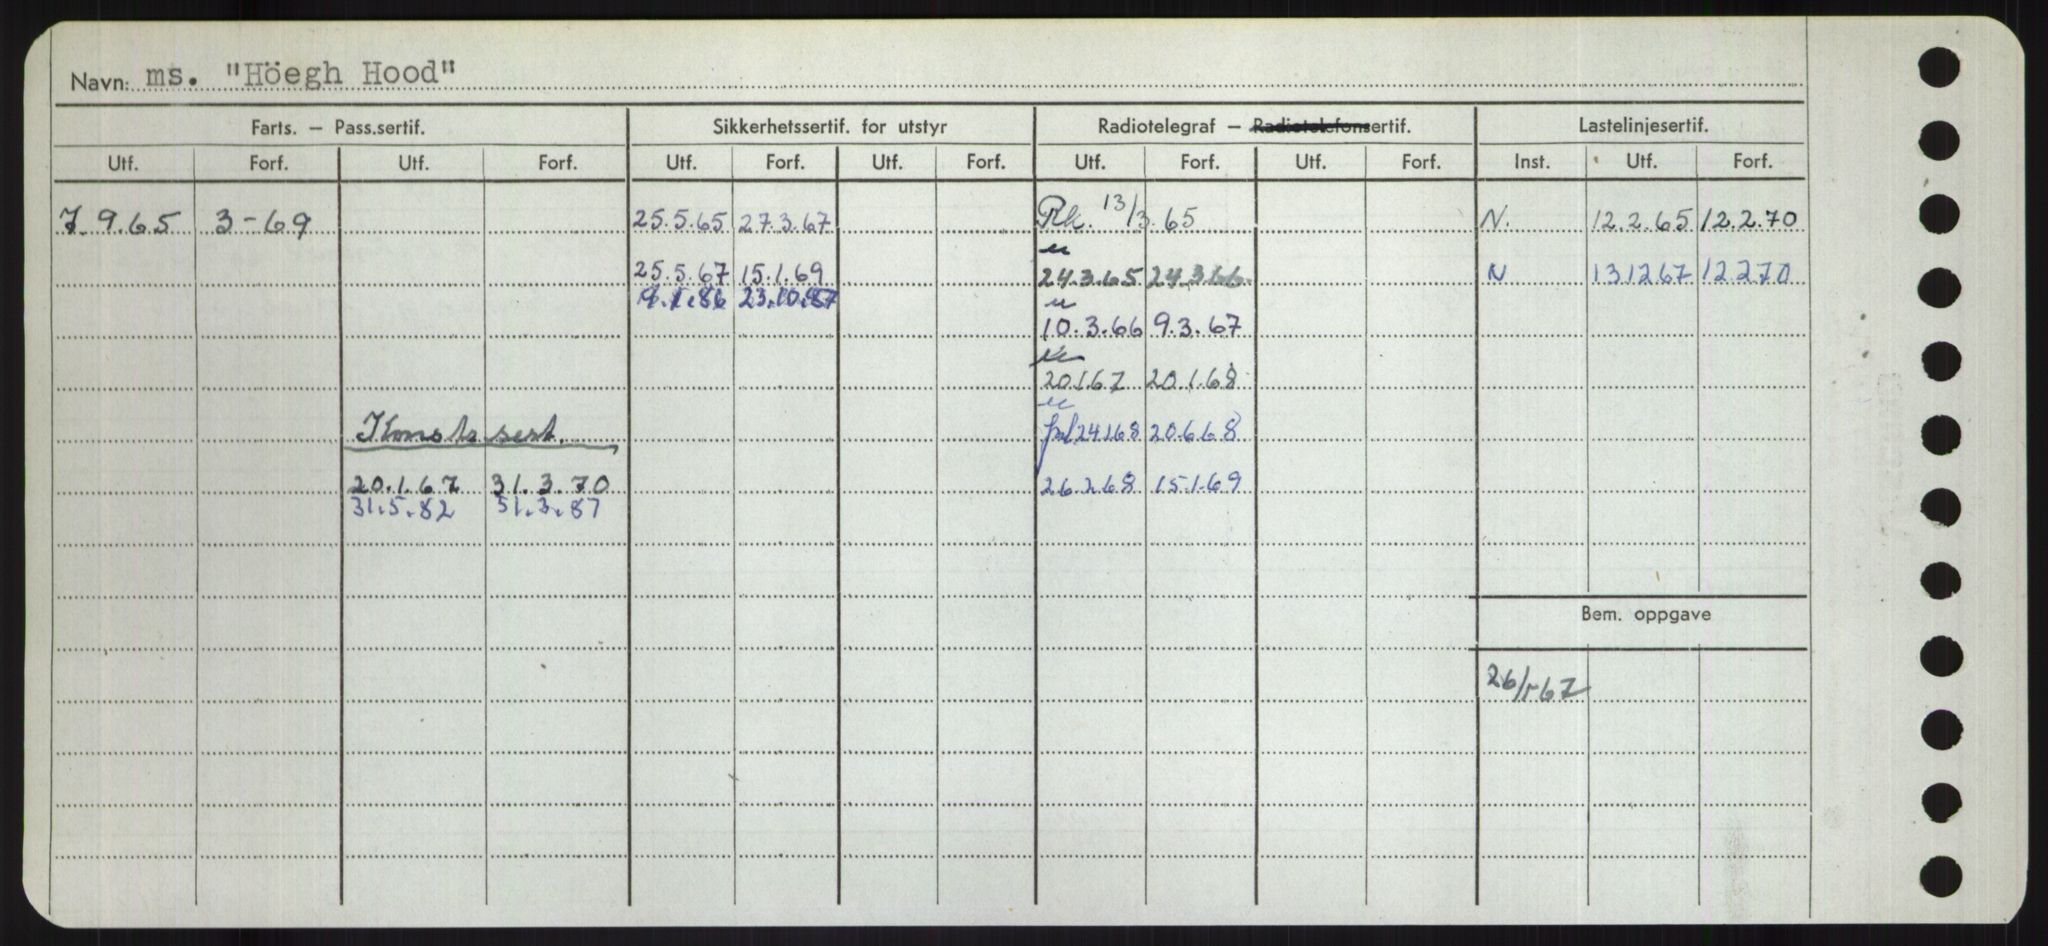 Navn: ms. "Höegh Hood"
Farts. — Pass.sertif. Sikkerhetssertif. for utstyr Radiotelegraf — Radiotelefonsertif. Lastelinjesertif.
Utf. Forf. Utf. Forf. Utf. Forf. Utf. Forf. Utf. Forf. Utf. Forf. Inst. Utf. Forf.
7.9.65 3-69 25.5.65 27.3.67 Rk. 13/3.65 N. 12.2.65 12.2.70
25.5.67 15.1.69 24.3.65 24.3.66 N 131267 12.270
23.10.87
10.3.66 9.3.67
20.1.67 20.1.68
Konstr.sert. 24.1.68 20.6.68
20.1.67 31.3.70 26.2.68 15.1.69
31.5.82 31.3.87
Bem. oppgave
26/1-67